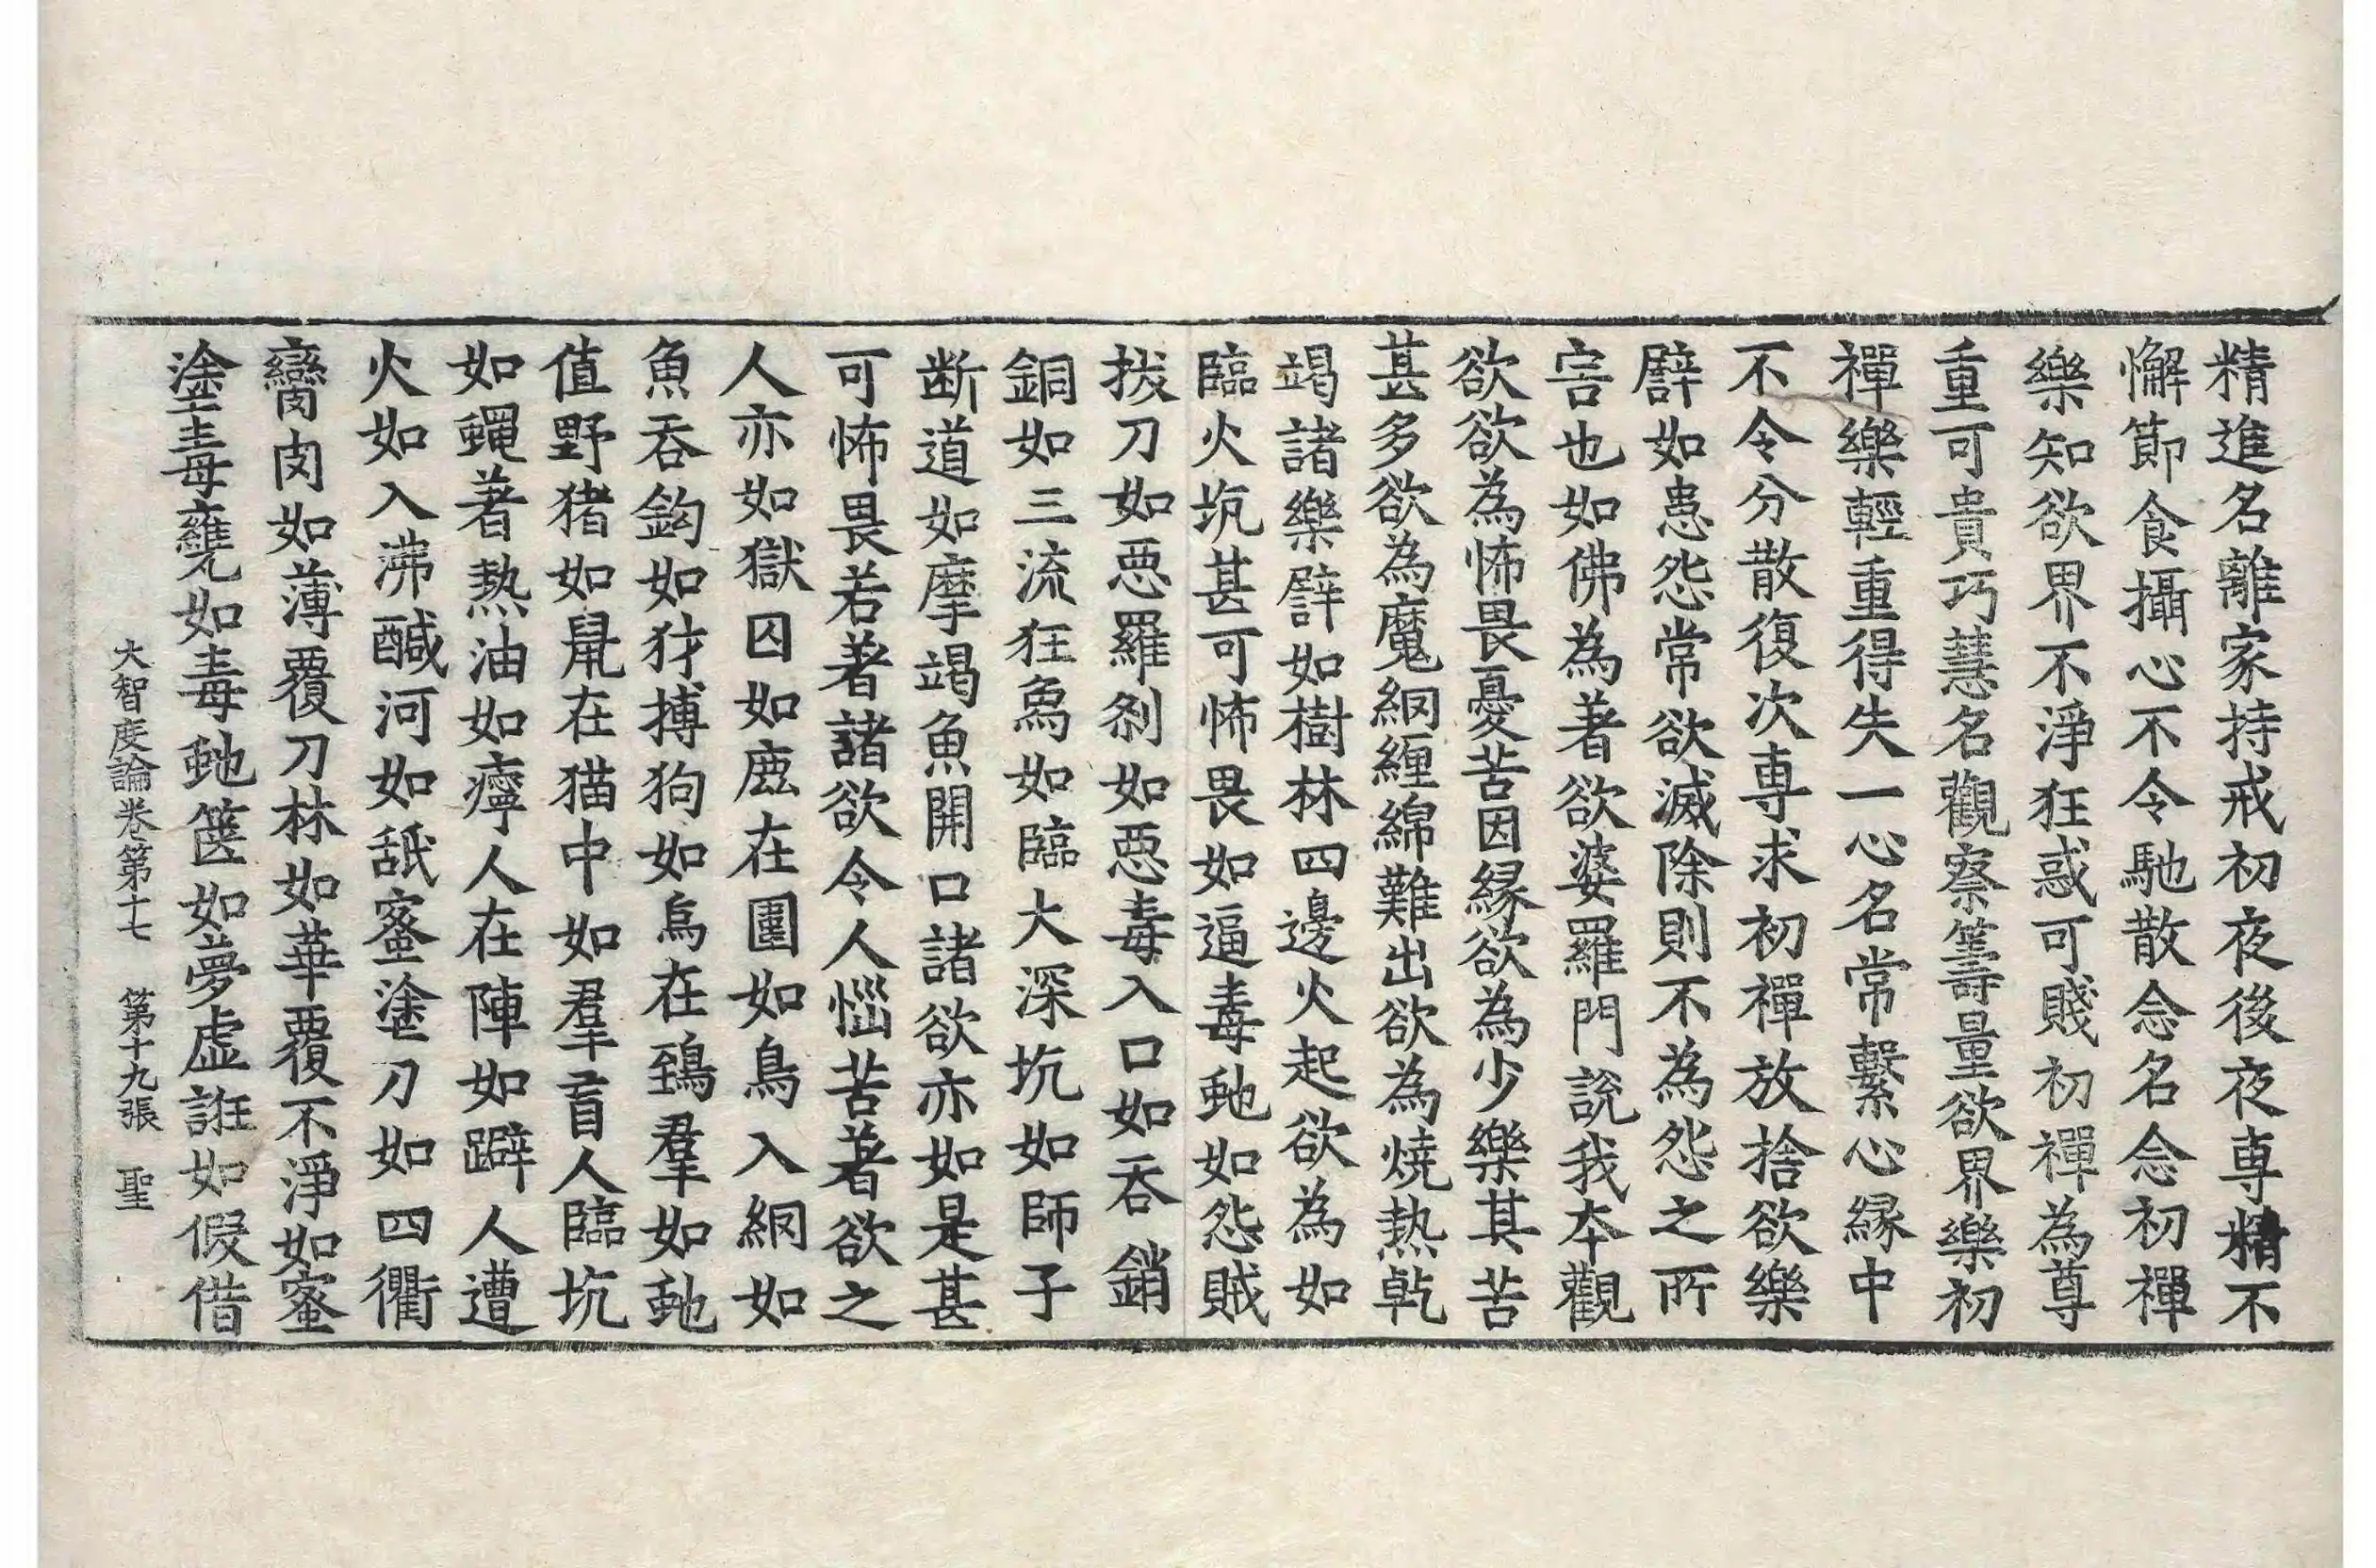 精進名離家持戒初夜後夜専精不
懈節食攝心不令馳散念名念初禪
樂知欲界不淨狂惑可賤初禪為尊
重可貴巧慧名觀察籌量欲界樂初
禪樂輕重得失一心名常繫心緣中
不令分散復次専求初禪放捨欲樂
譬如患怨常欲滅除則不為怨之所
害也如佛為著欲婆羅門說我本觀
欲欲為怖畏憂苦因緣欲為少樂其苦
甚多欲為魔網纏綿難出欲為燒熱乹
竭諸樂譬如樹林四邊火起欲為如
臨火坑甚可怖畏如逼毒虵如怨賊
拔刀如惡羅剎如惡毒入口如吞銷
銅如三流狂象如臨大深坑如師子
断道如摩竭魚開口諸欲亦如是甚
可怖畏若著諸欲令人惱苦著欲之
人亦如獄囚如鹿在圍如鳥入網如
魚吞鉤如犲搏狗如烏在鵄羣如虵
值野猪如鼠在猫中如羣盲人臨坑
如蠅著熱油如癉人在陣如躃人遭
火如入沸醎河如舐蜜塗刀如四衢
臠肉如薄覆刀林如華覆不淨如蜜
塗毒甕如毒虵篋如夢虛誑如假借
大智度論卷第十七　第十九張　聖